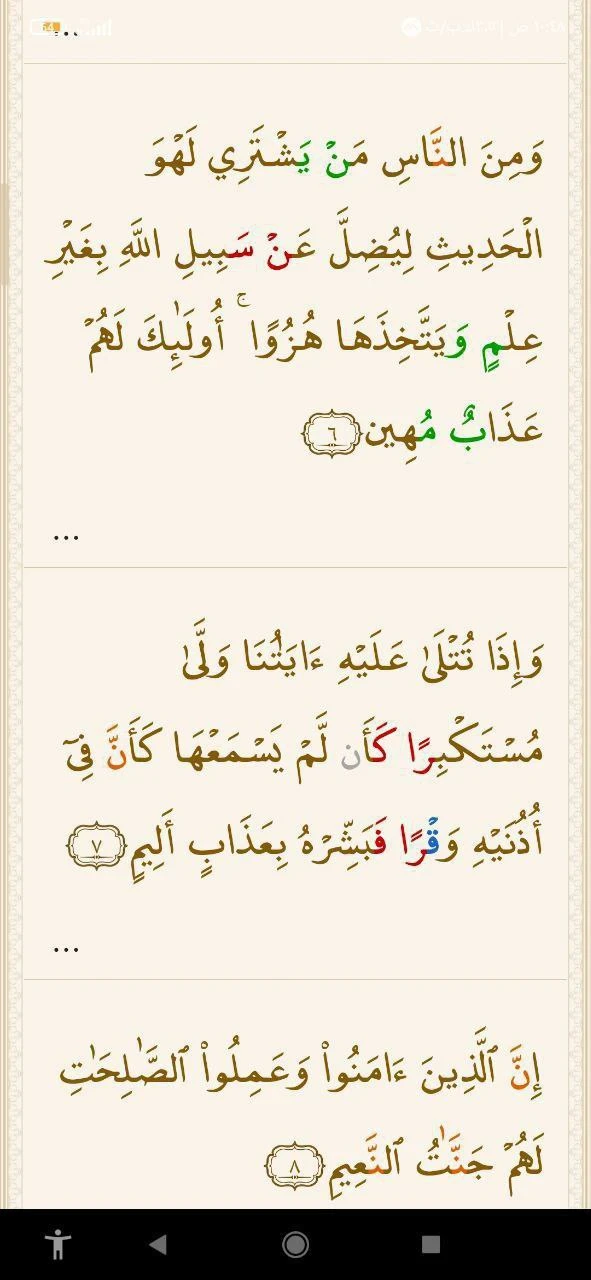 ...
وَمِنَ النَّاسِ مَنْ يَشْتَرِي لَهْوَ
الْحَدِيثِ لِيُضِلَّ عَنْ سَبِيلِ اللَّهِ بِغَيْرِ
عِلْمٍ وَيَتَّخِذَهَا هُزُوًا ۚ أُولَٰئِكَ لَهُمْ
عَذَابٌ مُهِين ٦
...
وَإِذَا تُتْلَىٰ عَلَيْهِ ءَايَٰتُنَا وَلَّىٰ
مُسْتَكْبِرًا كَأَن لَّمْ يَسْمَعْهَا كَأَنَّ فِىٓ
أُذُنَيْهِ وَقْرًا فَبَشِّرْهُ بِعَذَابٍ أَلِيمٍ ٧
...
إِنَّ ٱلَّذِينَ ءَامَنُوا۟ وَعَمِلُوا۟ ٱلصَّٰلِحَٰتِ
لَهُمْ جَنَّٰتُ ٱلنَّعِيمِ ٨